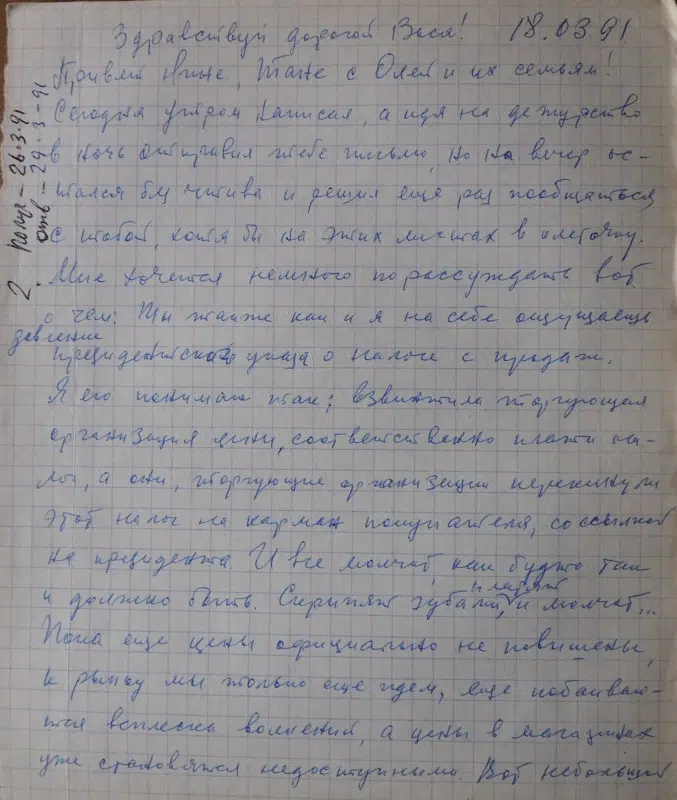 Здравствуй дорогой Вася! 18.03.91
Привет Нине, Тане с Олей и их семьям!
Сегодня утром написал, а идя на дежурство
в ночь отправил тебе письмо, но на вечер ос-
тался без чтива и решил еще раз пообщаться
с тобой, хотя бы на этих листах в клеточку.
Мне хочется немного порассуждать вот
о чем: Ты также как и я на себе ощущаешь
давление
президентского указа о налоге с продаж.
Я его понимаю так: взвинтила торгующая
организация цены, соответственно плати на-
лог, а они, торгующие организации перекинули
этот налог на карман покупателя, со ссылкой
на президента. И все молчат, как будто так
и должно быть. Скрипят зубами, платят и молчат...
Пока еще цены официально не повышены,
к рынку мы только еще идем, еще побаиваю-
тся всплеска волнений, а цены в магазинах
уже становятся недоступными. Вот небольшой
2. Получ – 26.3.91
отв – 29-3-91